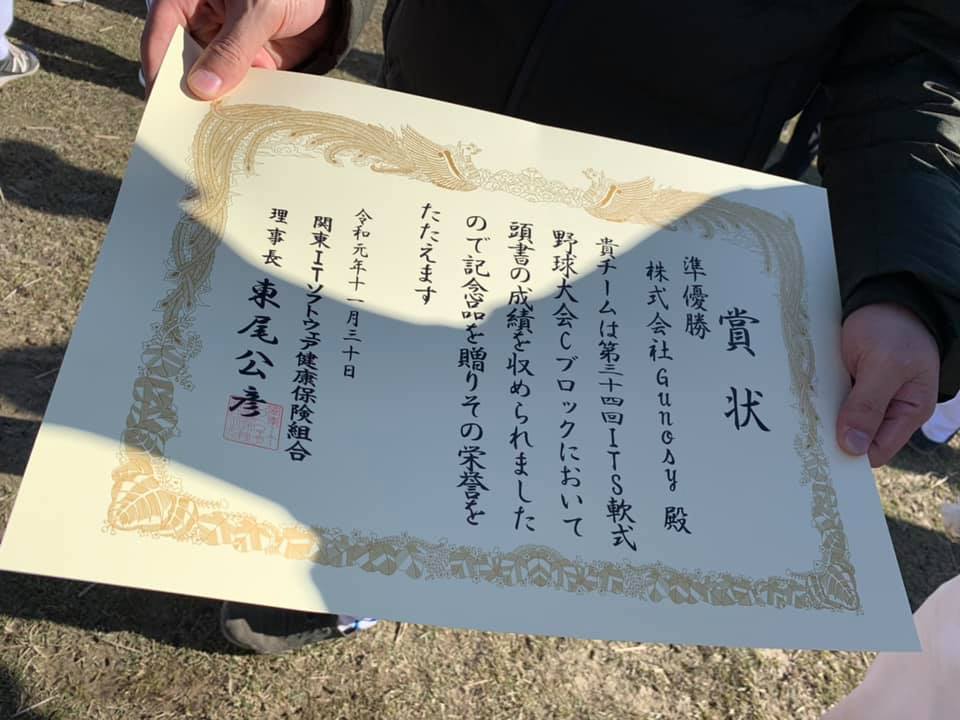 賞状
準優勝
株式会社Gunosy 殿
貴チームは第三十四回ITS軟式
野球大会Cブロックにおいて
頭書の成績を収められました
ので記念品を贈りその栄誉を
たたえます
令和元年十一月三十日
関東ITソフトウェア健康保険組合
理事長 東尾公彦